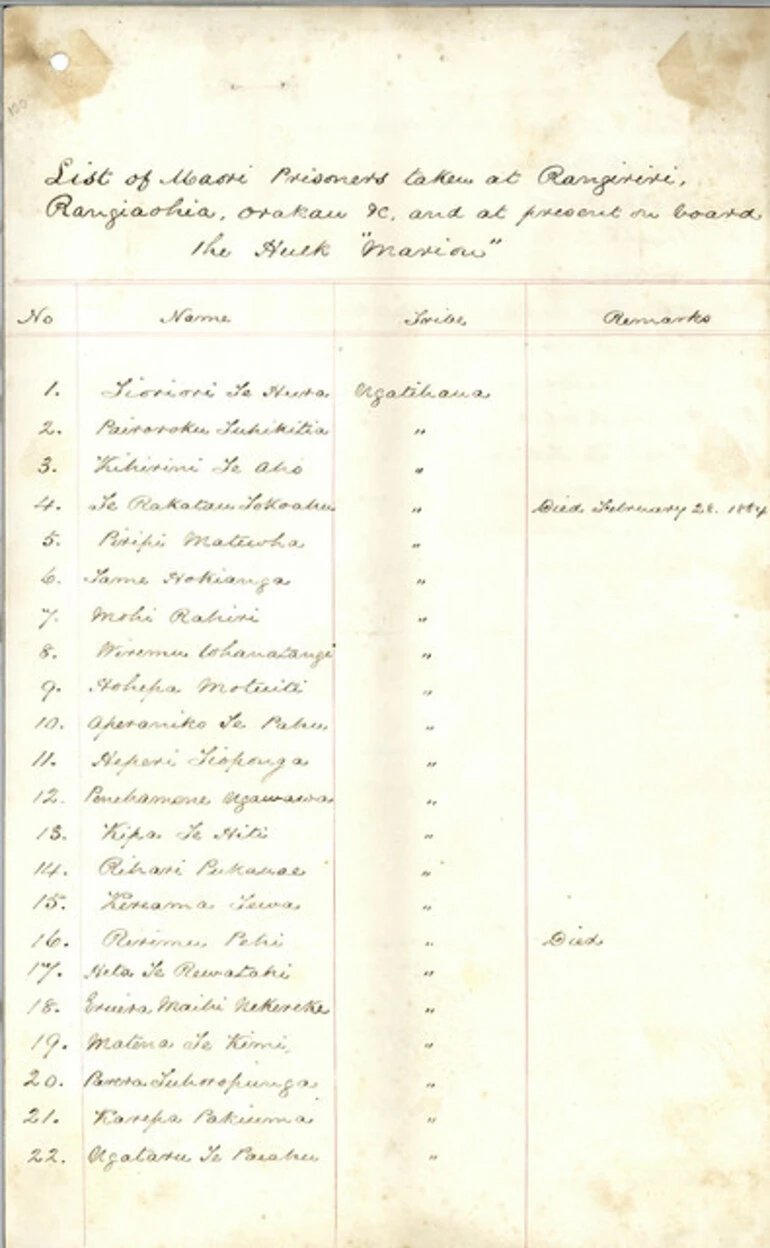 List of Maori Prisoners taken at Rangiriri,
Rangiaohia, Orakau &c, and at present on board
the Hulk "Marion"
No Name Tribe Remarks
1. Tioriori Te Hura Ngatihaua
2. Pairoroku Tuhikitia "
3. Kihirini Te Aho "
4. Te Rakatau Tokoahu " Died February 28. 1864
5. Piripi Matewha "
6. Tame Hokianga "
7. Mohi Rahiri "
8. Wiremu Whanatangi "
9. Hohepa Motuiti "
10. Aperaniko Te Pahu "
11. Heperi Tioponga "
12. Penehamene Ngawawa "
13. Kipa Te Hiti "
14. Rihari Pukauae "
15. Kereama Tewa "
16. Ririmu Pehi " Died
17. Heta Te Rewatahi "
18. Eruera Maihi Nekereke "
19. Matena Te Kimi, "
20. Perera Tuhoropunga "
21. Karepa Pakiuma "
22. Ngataru Te Paiahu "